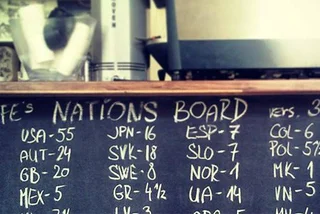 FE's NATIONS BOARD vers. 3
USA-55 JPN-16 ESP-7 COL-6
AUT-24 SVK-18 SLO-7 POL-5½
GB-20 SWE-8 NOR-1 MK-1
MEX-5 GR-4½ UA-14 VN-5